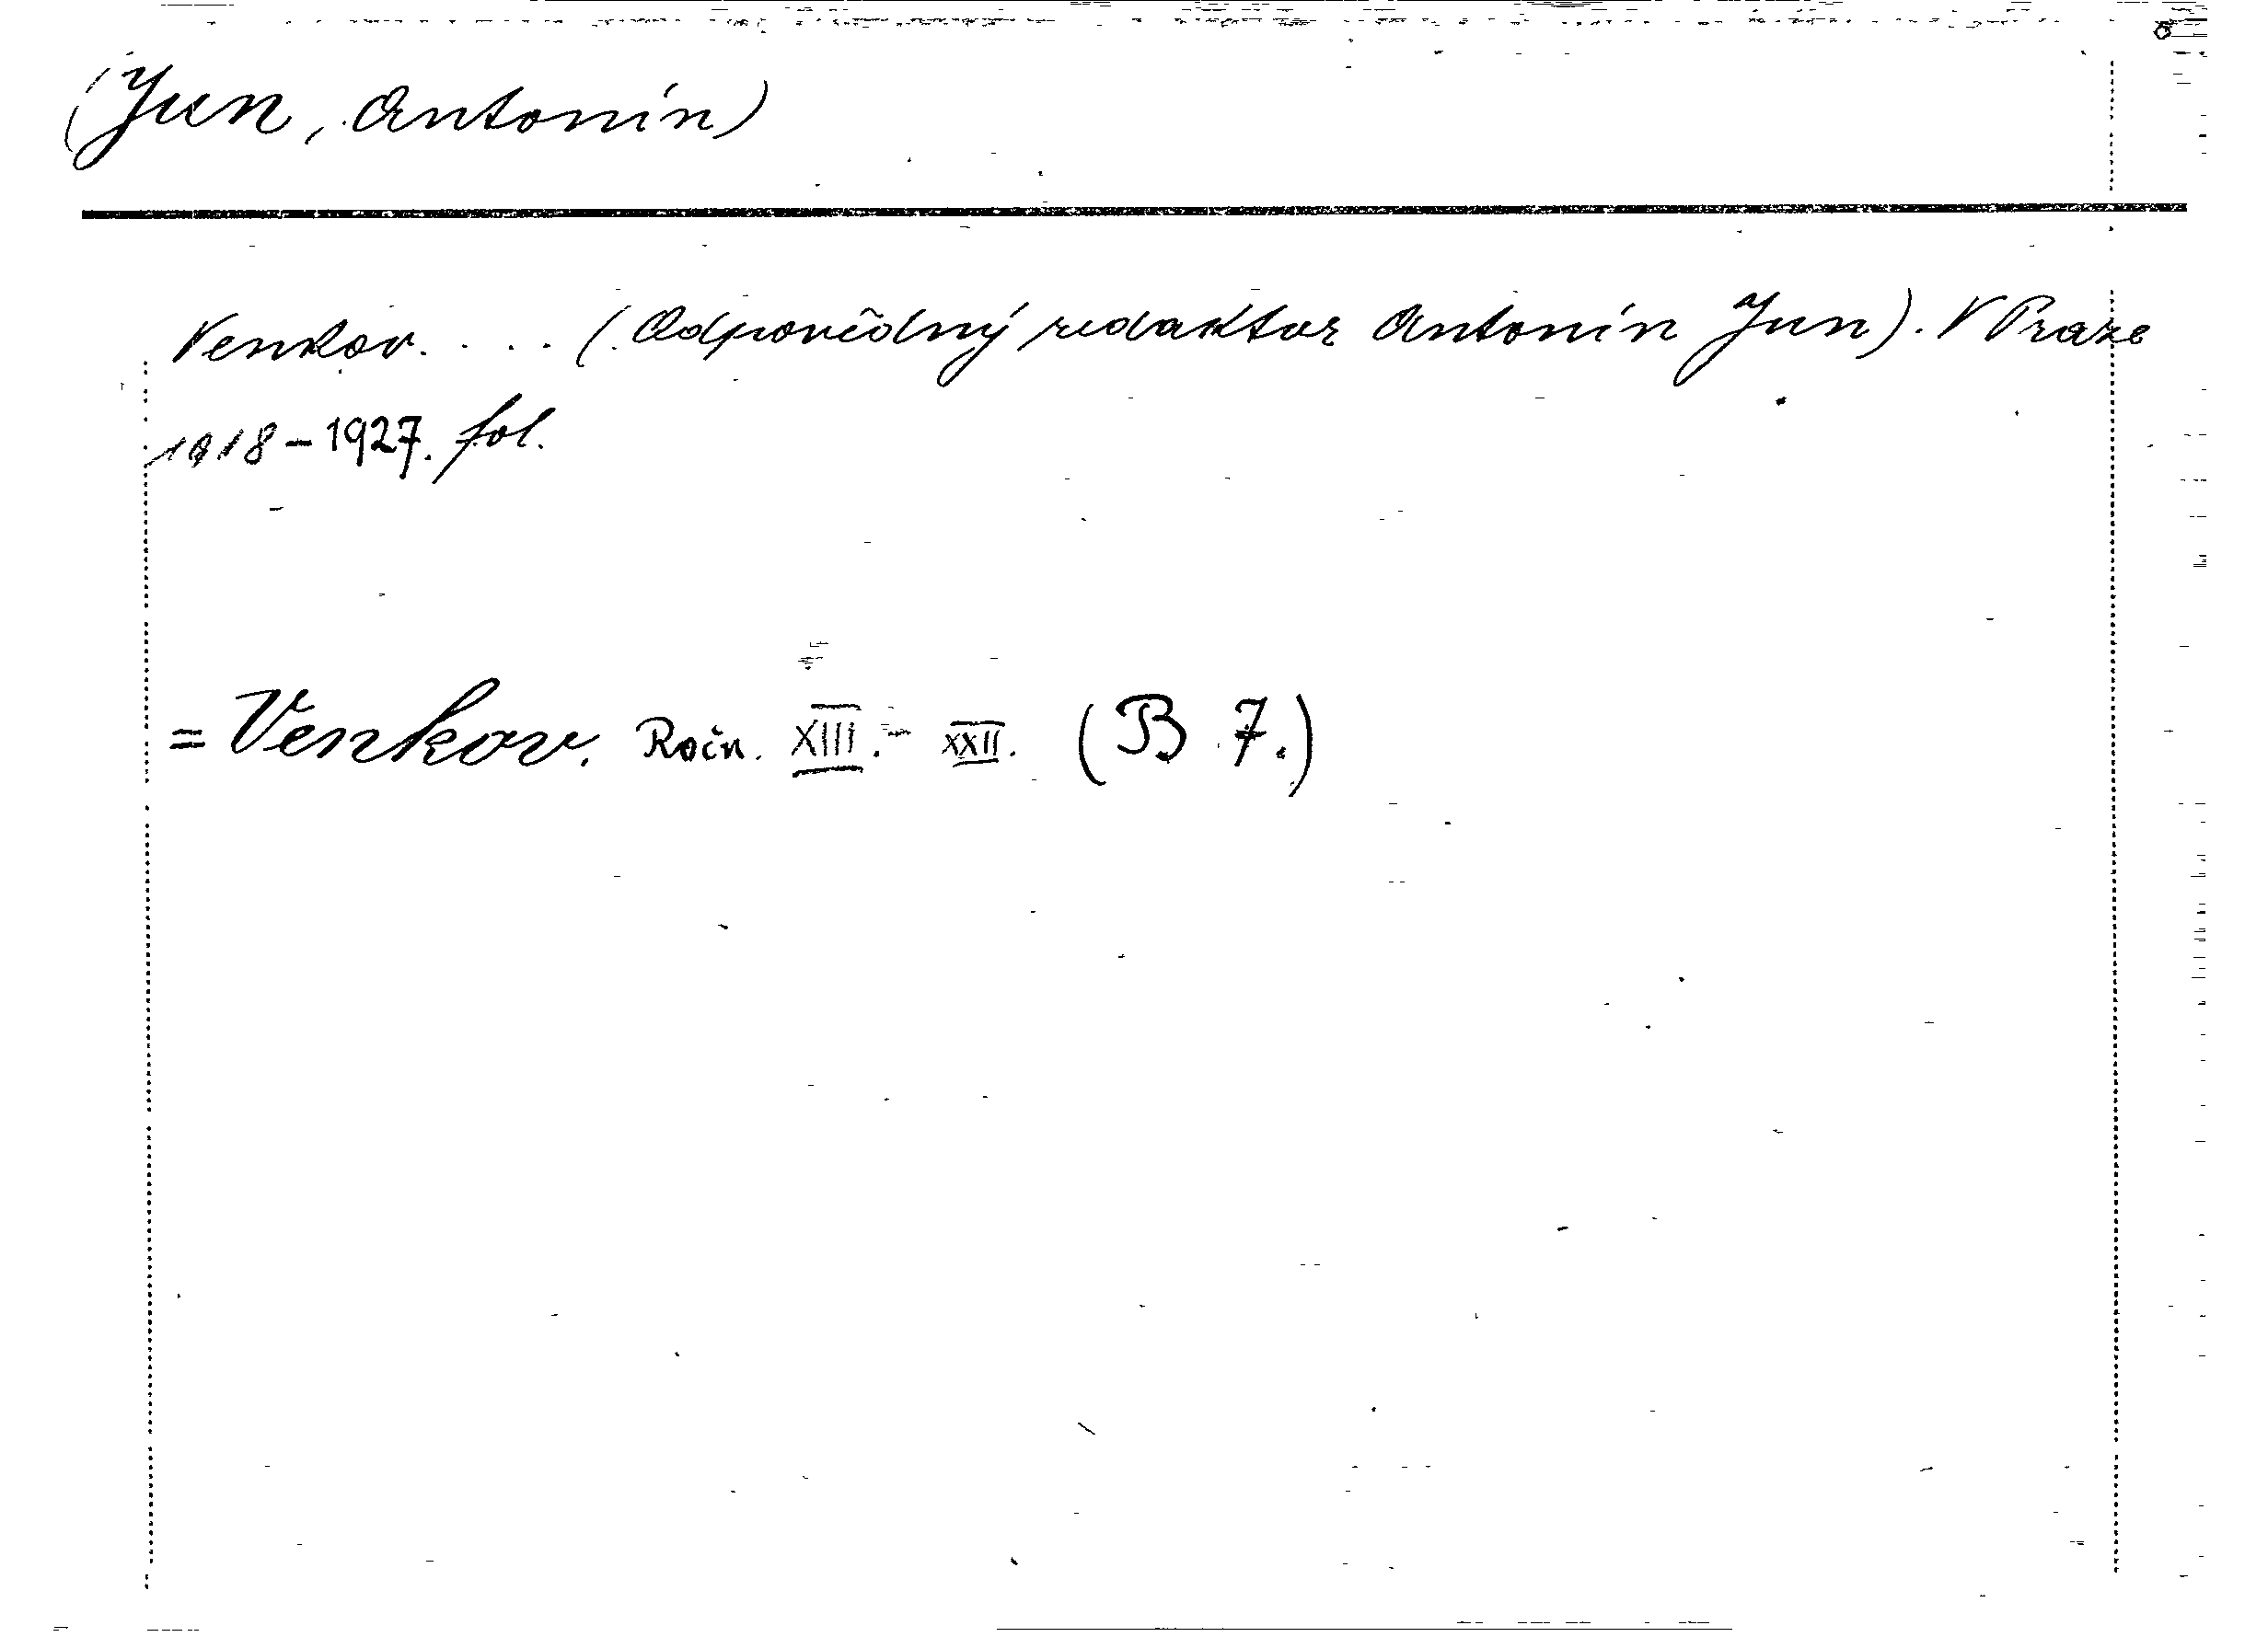 (Jun, Antonín)
Venkov. . . . (Odpovědný redaktor Antonín Jun). V Praze
1918-1927. fol.
= Venkov. Ročn. XIII.- XXII. (B 7.)